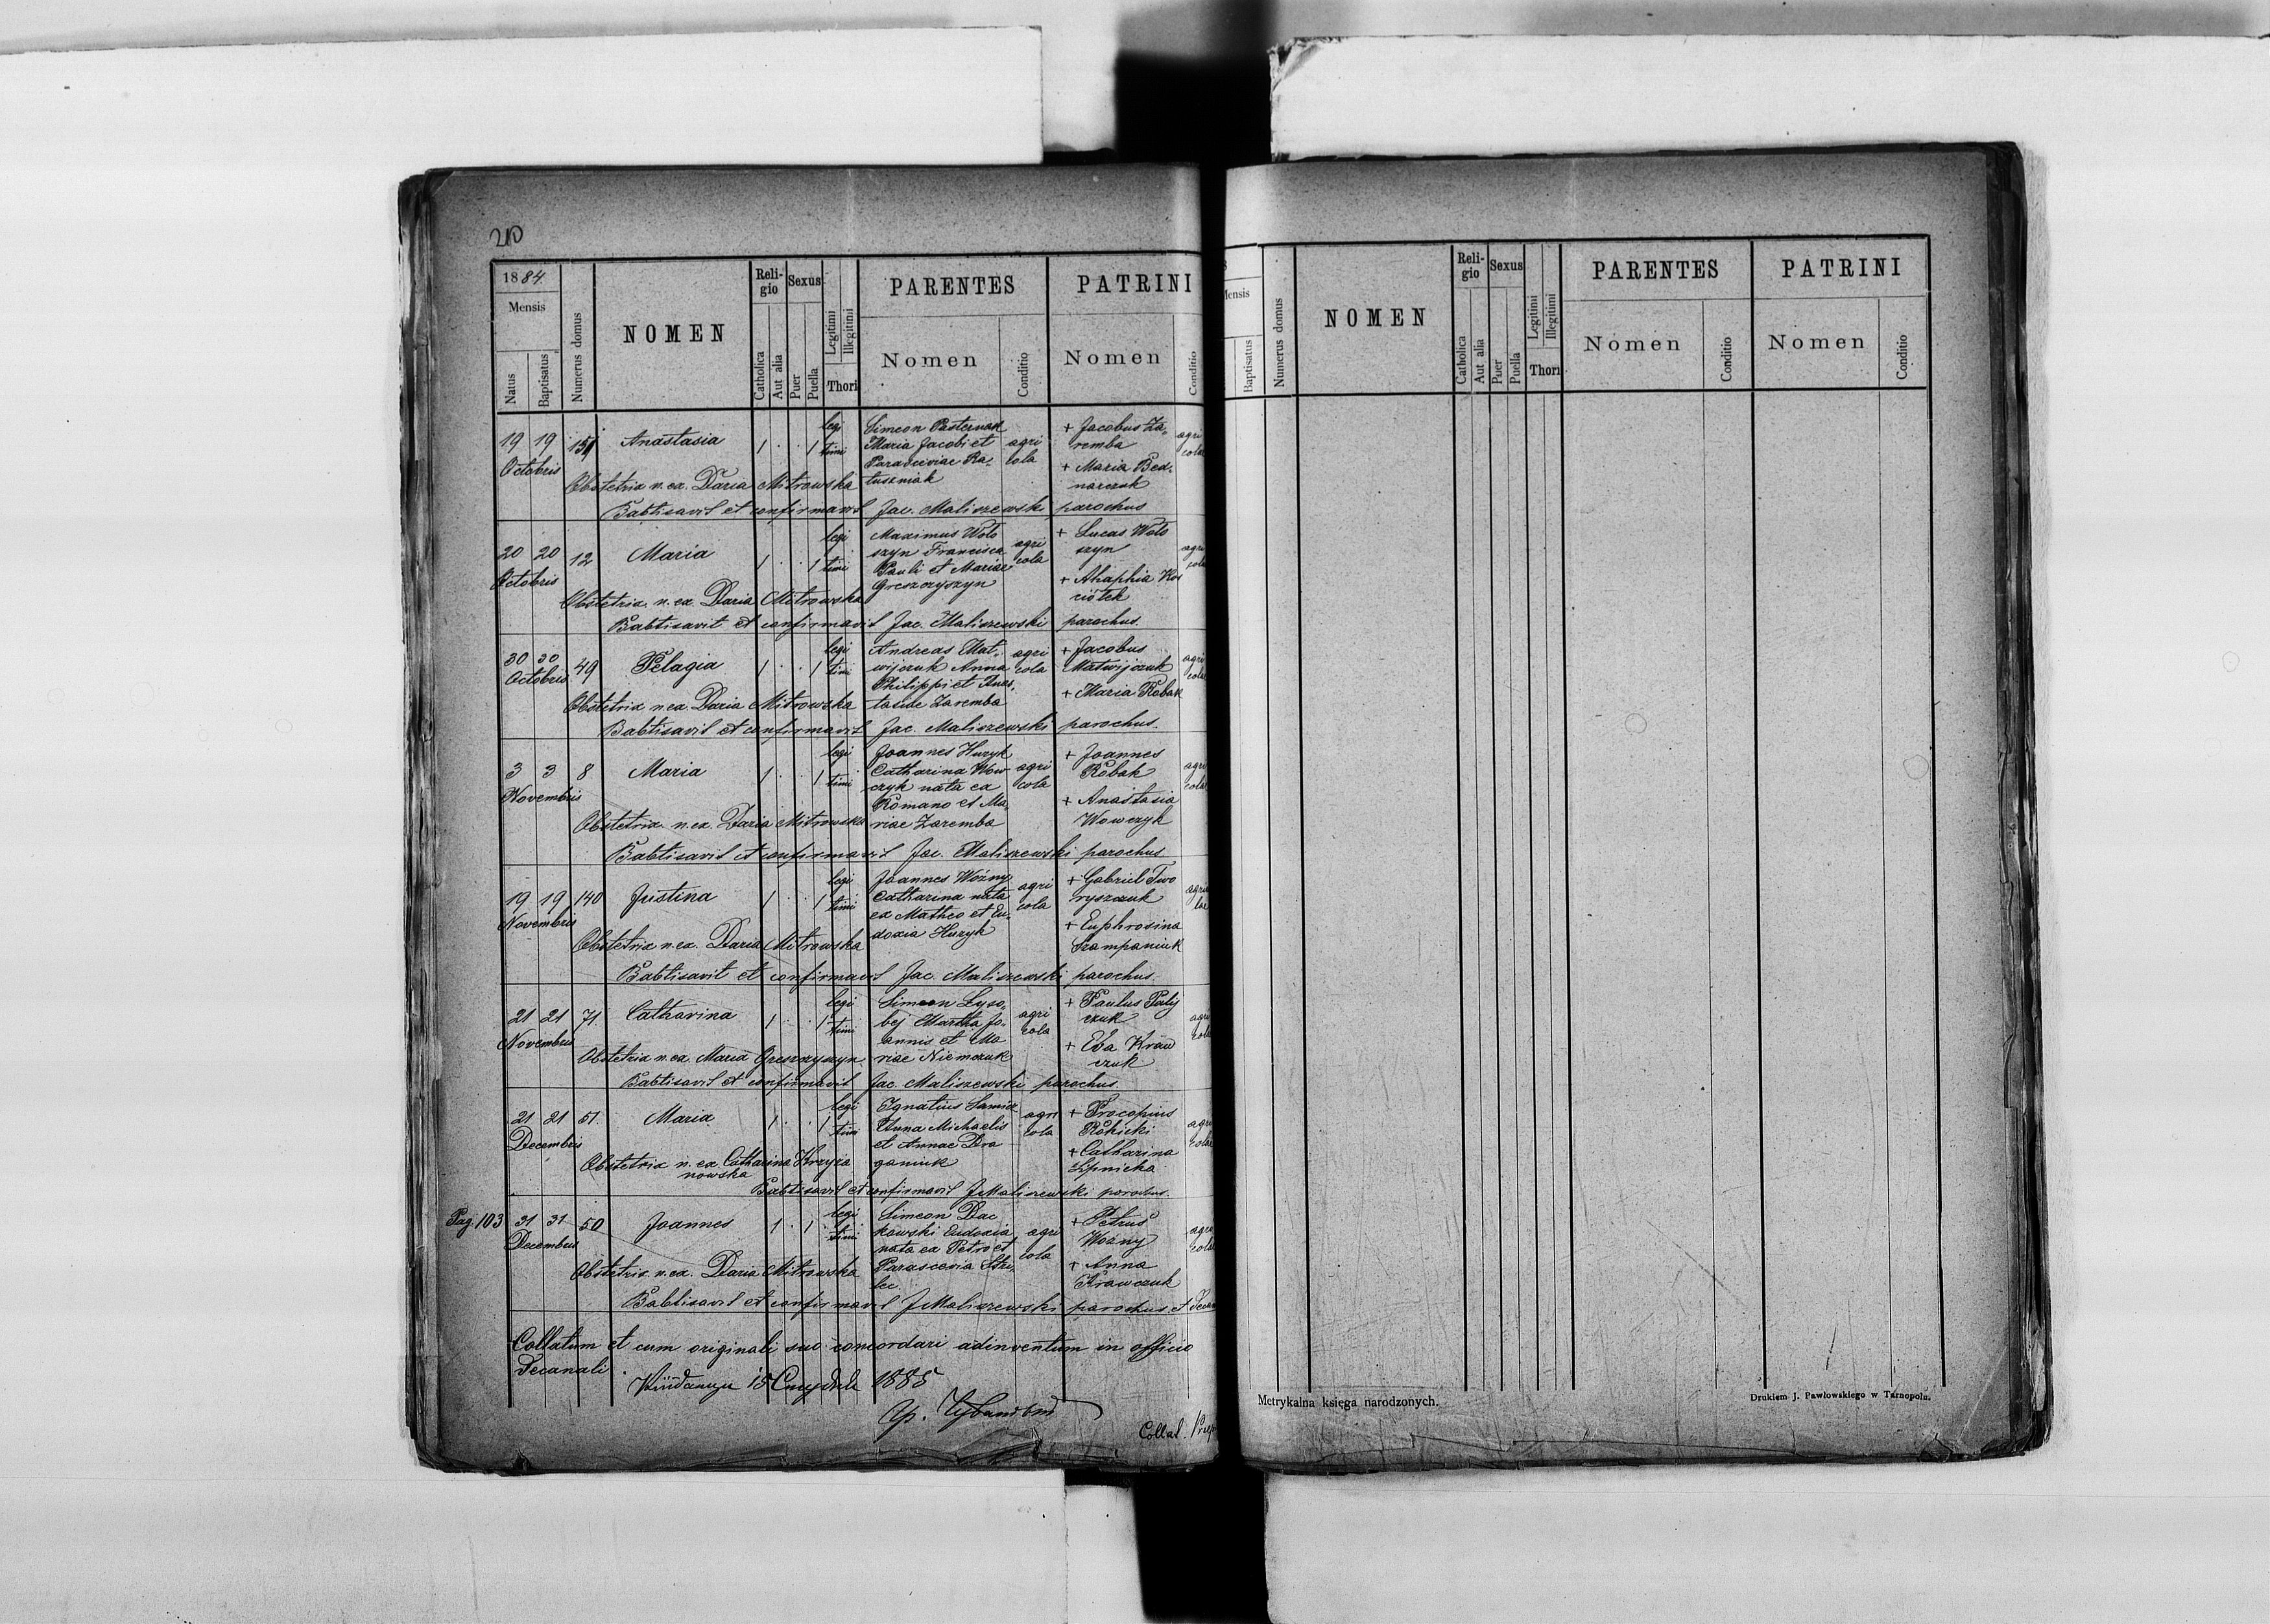 210
1884.
Mensis
Natus
Baptisatus
Numerus domus
NOMEN
Reli-
gio
Catholica
Aut alia
Sexus
Puer
Puella
Legitimi
Illegitimi
Thori
PARENTES
Nomen
Conditio
PATRINI
Nomen
Conditio
19 19 151 Anastasia 1 . . 1 legi
timi
Octobris
Simeon Pasternak
Maria Jacobi et
Parasceviae Ra-
tuszniak
agri
cola
+ Jacobus Za-
remba
+ Maria Bed-
narczuk
agri
colae
Obstetrix n. ex. Daria Mitrowska
Babtisavit et confirmavit Jac. Maliszewski parochus
20 20 12 Maria 1 . . 1 legi
timi
Octobris
Maximus Woło
szyn Francisca
Pauli et Mariae
Greszczyszyn
agri
cola
+ Lucas Woło
szyn
+ Ahaphia Kos
ciółek
agri
colae
Obstetrix n. ex. Daria Mitrowska
Babtisavit et confirmavit Jac. Maliszewski parochus.
30 30 49 Pelagia 1 . . 1 legi
timi
Octobris
Andreas Mat-
wijczuk Anna
Philippi et Anas-
tasiae Zaremba
agri
cola
+ Jacobus
Matwijczuk
+ Maria Robak
agri
colae
Obstetrix n. ex. Daria Mitrowska
Babtisavit et confirmavit Jac. Maliszewski parochus.
3 3 8 Maria 1 . . 1 legi
timi
Novembris
Joannes Huzyk
Catharina Wow
czyk nata ex
Romano et Ma-
riae Zaremba
agri
cola
+ Joannes
Robak
+ Anastasia
Wowczyk
agri
colae
Obstetrix n. ex. Daria Mitrowska
Babtisavit et confirmavit Jac. Maliszewski parochus
19 19 140 Justina 1 . . 1 legi
timi
Novembris
Joannes Woźny
Catharina nata
ex Matheo et Eu-
doxia Huzyk
agri
cola
+ Gabriel Two
ryszczuk
+ Euphrosina
Szampaniuk
Obstetrix n. ex. Daria Mitrowska
Babtisavit et confirmavit Jac. Maliszewski parochus.
21 21 71 Catharina 1 . . 1 legi
timi
Novembris
Simeon Lyso-
bej Martha Jo-
annis et Ma
riae Niemczuk
agri
cola
+ Paulus Palij
czuk
+ Eva Kraw
czuk
agri
colae
Obstetrix n. ex. Maria Greszczyszyn
Babtisavit et confirmavit Jac. Maliszewski parochus.
21 21 51. Maria 1 . . 1 legi
timi
Decembris
Ignatius Samicz
Anna Michaelis
et Annae Dra
ganiuk
agri
cola
+ Procopius
Rokicki
+ Catharina
Lipnicka
agri
colae
Obstetrix n. ex. Catharina Krzyża
nowska
Babtisavit et confirmavit J Maliszewski parochus.
Pag. 103 31 31 50 Joannes 1 . 1 . legi
timi
Decembris
Simeon Dac
kowski Eudoxia
nata ex Petro et
Parascevia Stri-
lec
agri
cola
+ Petrus
Woźny
+ Anna
Krawczuk
agri
colae
Obstetrix n. ex. Daria Mitrowska
Babtisavit et confirmavit J Maliszewski parochus et Decan
Collatum et cum originali suo concordari adinventum in officio
Decanali.
1885
Collat.
Mensis
Baptisatus
Numerus domus
NOMEN
Reli-
gio
Catholica
Aut alia
Sexus
Puer
Puella
Legitimi
Illegitimi
Thori
PARENTES
Nomen
Conditio
PATRINI
Nomen
Conditio
Metrykalna księga narodzonych.
Drukiem J. Pawłowskiego w Tarnopolu.